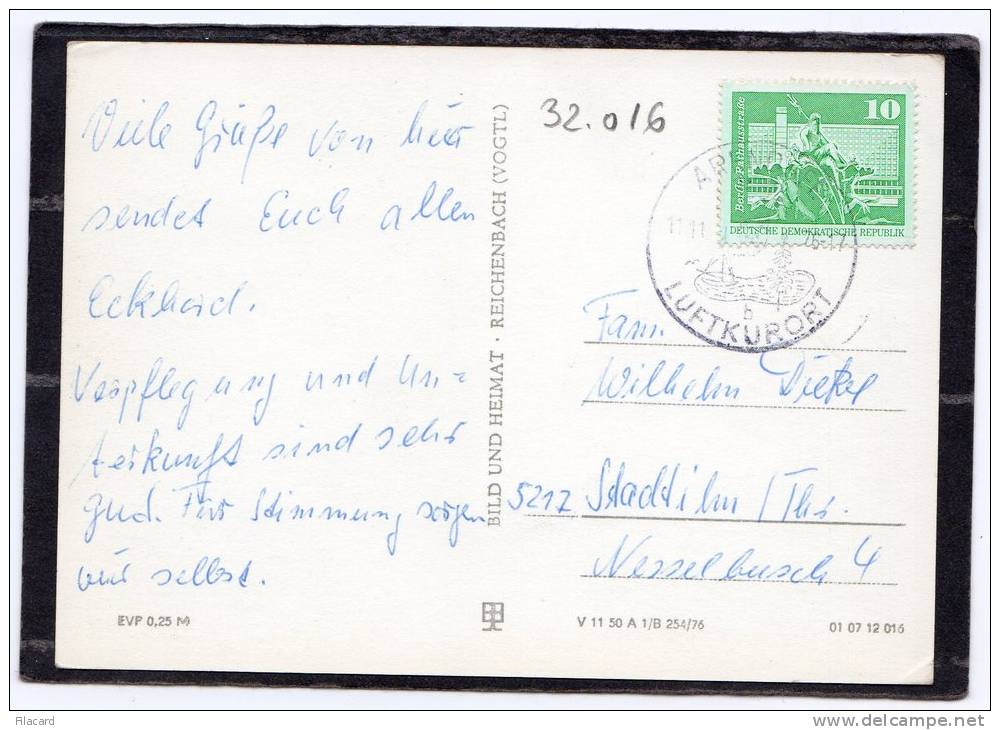 Viele Grüße von hier
sendet Euch allen
Eckhard.
Verpflegung und Un=
terkunft sind sehr
gud. Für Stimmung sorgen
wir selbst.
EVP 0,25 M
BILD UND HEIMAT · REICHENBACH (VOGTL)
32.016
10
Berlin, Rathausstraße
DEUTSCHE DEMOKRATISCHE REPUBLIK
11.11
-17
b
LUFTKURORT
Fam.
Wilhelm
5217 Stadtilm / Thür.
Nesselbusch 4
V 11 50 A 1/B 254/76
01 07 12 016
Filacard
delcampe.net